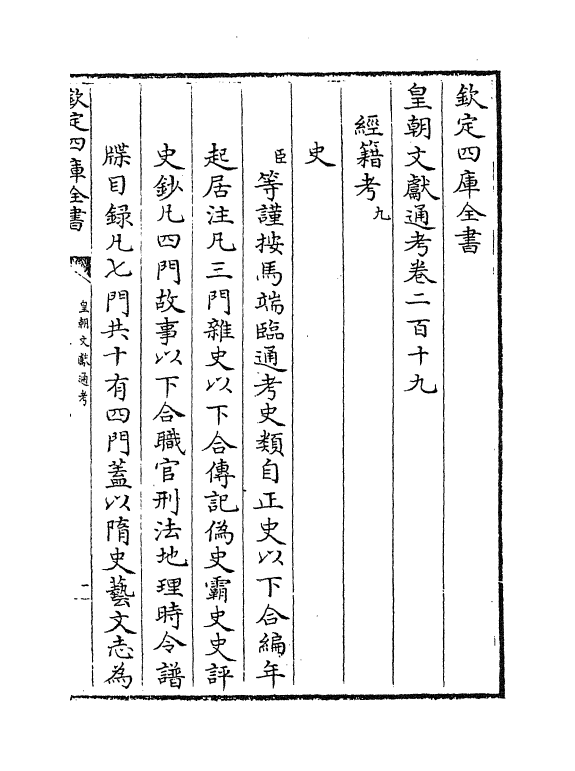 欽定四庫全書
皇朝文獻通考卷二百十九
經籍考九
史
臣等謹按馬端臨通考史類自正史以下合編年
起居注凡三門雜史以下合傳記偽史霸史史評
史鈔凡四門故事以下合職官刑法地理時令譜
牒目録凡七門共十有四門蓋以隋史藝文志為
欽定四庫全書
皇朝文獻通考
一